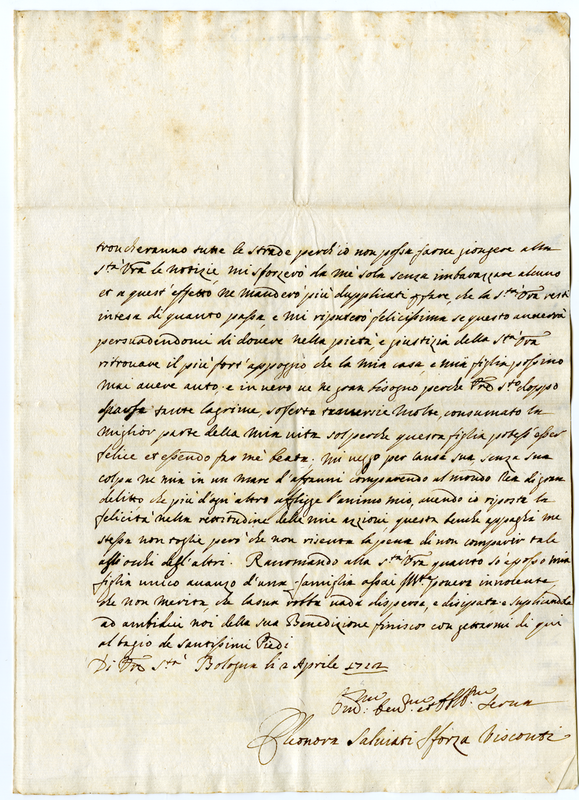 troncheranno tutte le strade perch'io non possa farne giongere alla
S.tà V̅r̅a̅ le notizie mi sforzerò da me sola senza imbarazzare alcuno
et a quest'effetto ne manderò più dupplicati, che la S.tà V̅r̅a̅ resti
intesa di quanto passa e mi riputerò felicissima se questo
persuadendomi di dovere nella pietà e giustizia della S.tà V̅r̅a̅
ritrovare il più fort'appoggio che la mia casa e mia figlia possino
mai avere auto, e in vero ve ne gran bisogno perche doppo
sparse tante lagrime, sofferte traversie molte, consumato la
miglior parte della mia vita sol perche questa figlia potess'esser
felice et essendo per me beata. Mi veggo per causa sua senza sua
colpa ne mia in un mare d'affanni comparendo al mondo Rea di gran
delitto che più d'ogn'altro afflige l'animo mio, avendo io riposta la
felicità nella rettitudine delle mie azzioni questa benche appaghi me
stessa non toglie però che non risenta la pena di non comparir tale
agl'occhi degl'altri. Racomando alla S.tà V̅r̅a̅ quanto so e posso mia
figlia unico avanzo d'una famiglia assai povera innocente
che non merita, che la sua robba vada dispersa, e disipata e suplicandola
ad ambidue noi della sua Benedizione finisco con gettarmi di qui
al bagio de santissimi Piedi
Di V̅r̅a̅ S.tà Bologna li 2 Aprile 1712
Serva
Eleonora Salviati Sforza Visconti